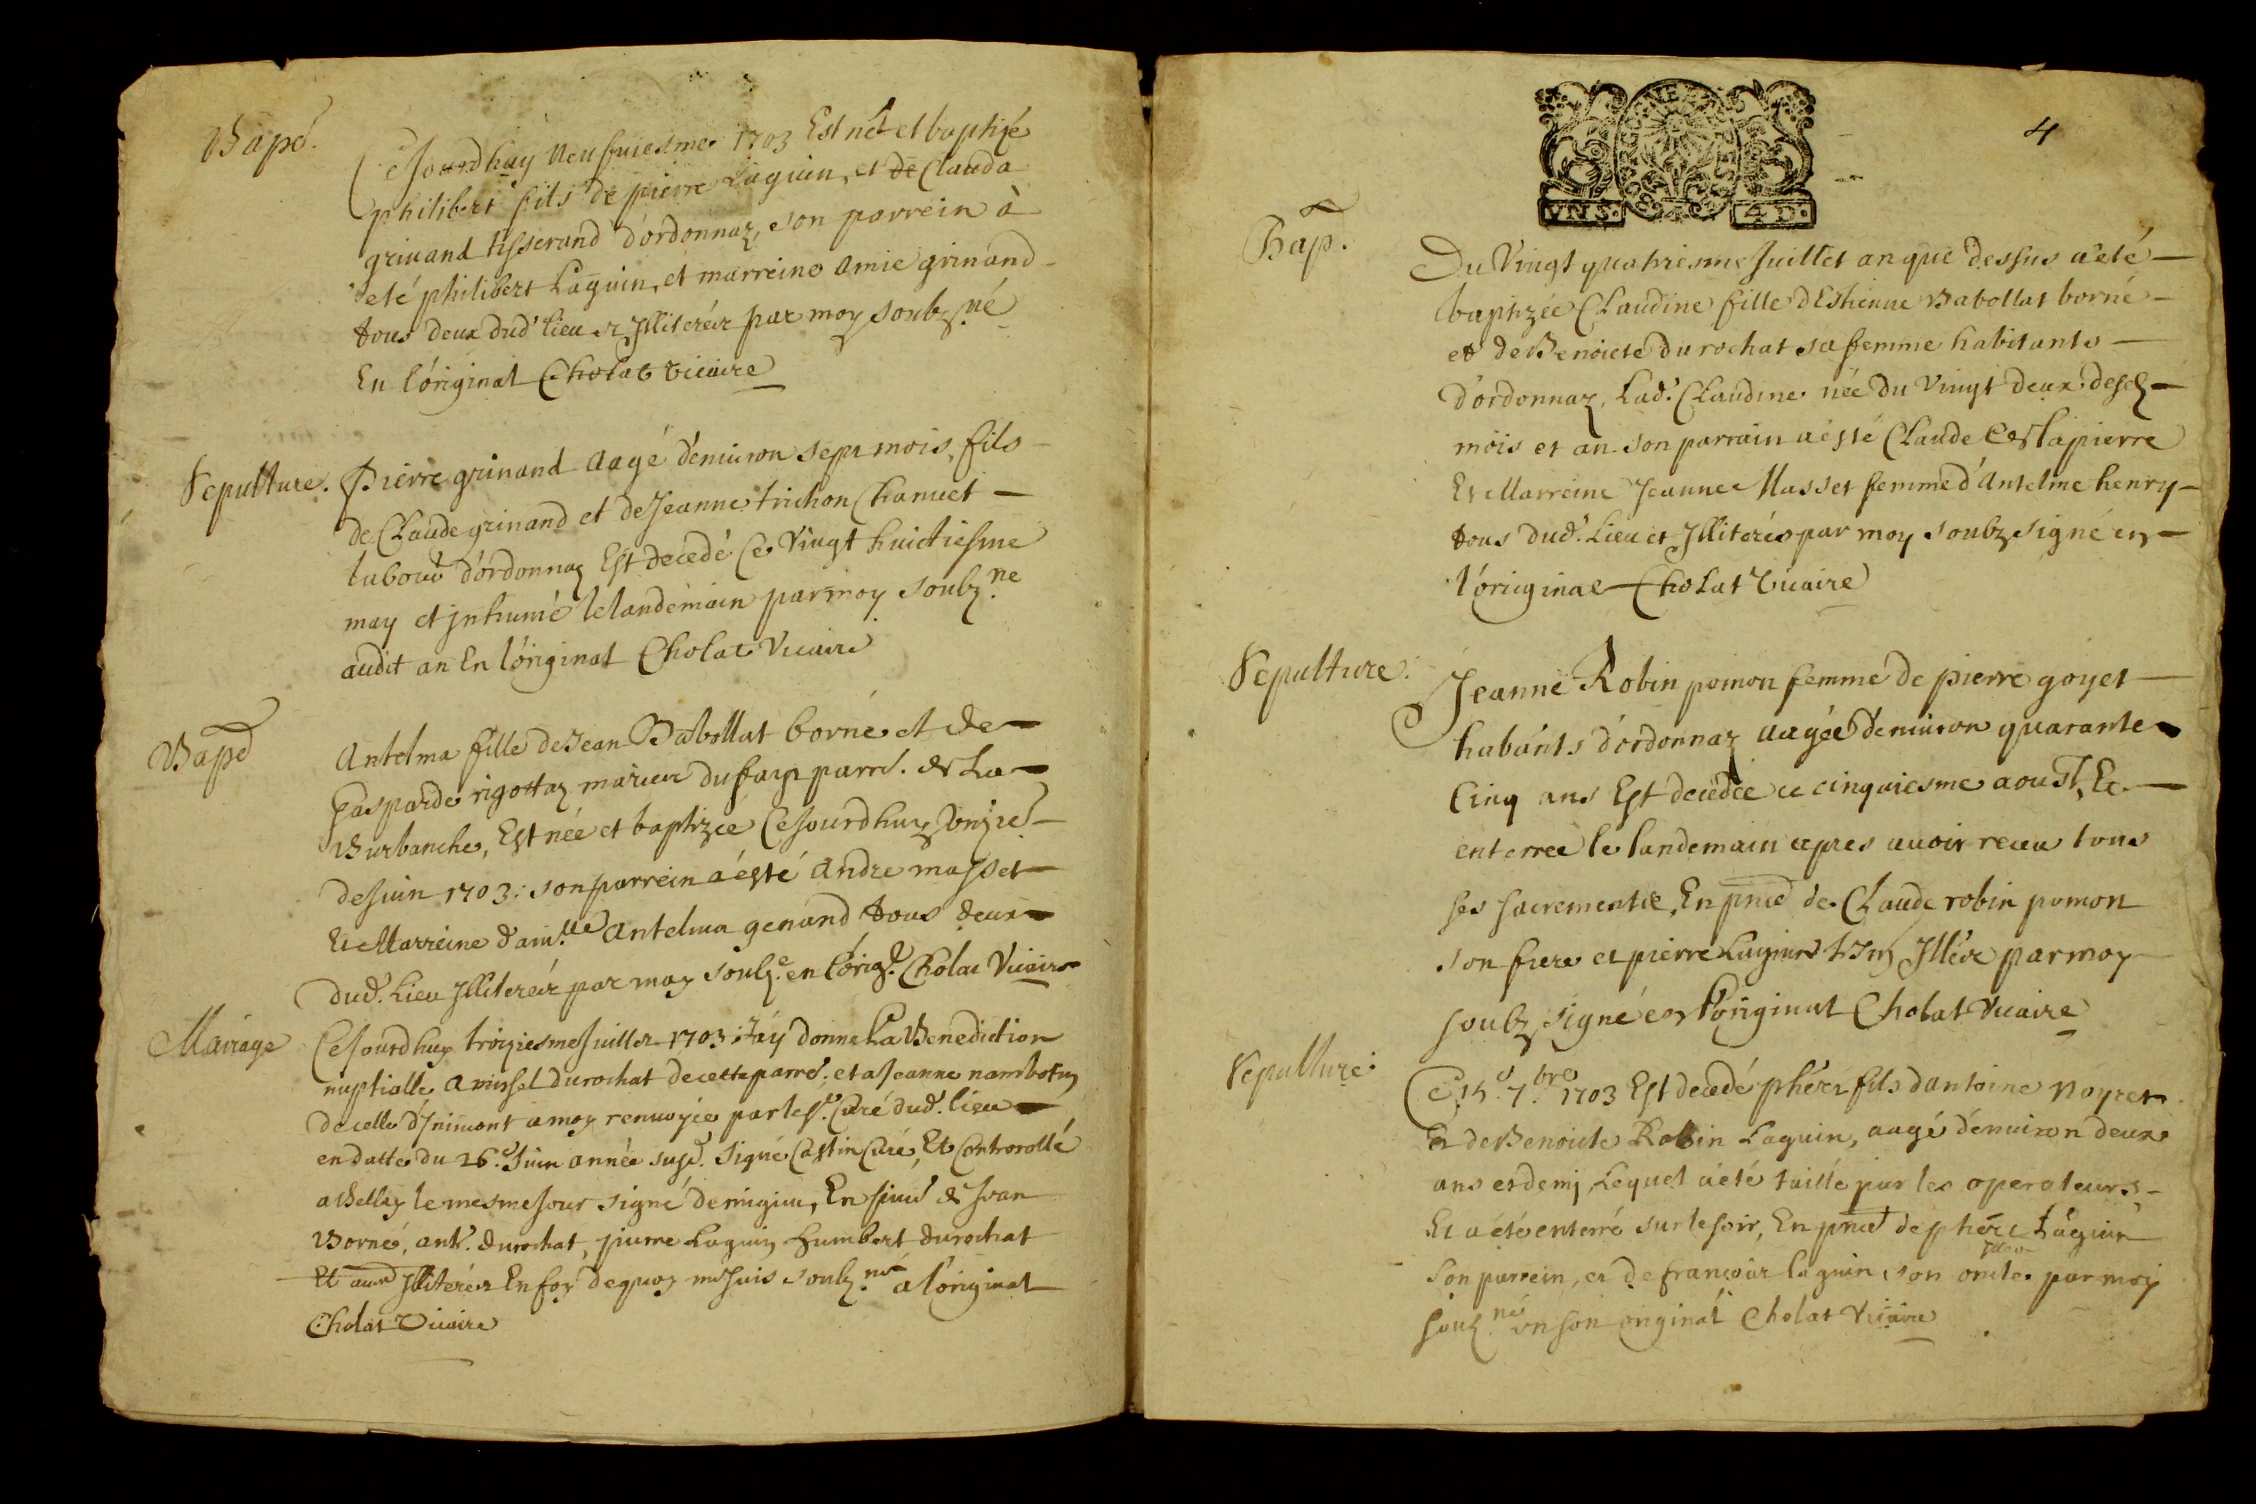 Bapẽ.
Cejourdhuy neufuiesme 1703 Est nét et baptizé
philibert fils de pierre Laguin, et de Clauda
grinand tisserand d'ordonnaz, son parrein à
eté philibert Laguin, et marreine Amie grinand
tous deux dud. lieu et Illiterés par moy soubz.né
En l'original Cholat vicaire
Sepulture.
Pierre grinand aagé d'enuiron sept mois, fils
de Claude grinand et de Jeanne trichon Chanuet
labour d'ordonnaz Est decedé Ce Vingt huictiesme
may et jnhumé lelandemain parmoy soubz.ne
audit an En l'original Cholat Vicaire
Bapẽ
Antelma fille de Jean Babollat borné et de
Gasparde rigottaz du parrẽ. de La
Burbanche, Est née et baptizée Cejourdhuy onzie
de Juin 1703: son parrein a ésté Andre masset
Et Marreine Antelma genand tous deux
dud. Lieu Illiterés par moy soubz.e en l'orig. Cholat Vicaire
Mariage
Cejourdhuy troiziesme Juillet 1703: J'ay donné La Benediction
nuptialle a durochat de cette parrẽ. et a Jeanne nambotin
de celle d'Jnimont a moy renuoyée par le s. Curé dud. lieu
en datte du 26.e Juin année susd. Signé Castin Curé, Et Controrollé
a Belley le mesme Jour signé En de Jean
Borné, ant. durochat, pierre Laguin humbert durochat
Et Illiterés En foy dequoy me suis soubz.né a l'original
Cholat Vicaire
4
VNS. 4D.
Bap.
Du Vingt quatriesme Juillet an que dessus a eté
baptizée Claudine fille d'Estienne Babollat borné
et de Benoicte durochat sa femme habitants
d'ordonnaz, Lad. Claudine née du Vingt deux desd.
mois et an son parrain a ésté Claude Costapierre
Et Marreine Jeanne Masset femme d'Antelme henry
tous dud. Lieu et Illiterés par moy soubz signé en
l'original Cholat Vicaire
Sepulture.
Jeanne Robin pomon femme de pierre goyet
habánts d'ordonnaz aagée d'enuiron quarante
Cinq ans Est decedée ce cinquiesme aoust, Et
enterrée le landemain apres auoir receu tous
ses sacrements, En pñce de Claude robin pomon
son frere et pierre Laguin par moy
soubz signé en l'original Cholat Vicaire
Sepulture:
Ce 15.e 7.bre 1703 Est decedé phẽrt fils d'antoine noyret
Et de Benoicte Robin Laguin, aagé d'enuiron deux
ans et demj, Lequel a eté taillé par les operateurs
Et a été enterré sur le soir, En pñce de phẽrt Laguin
Son parrein, et de françois laguin son oncle Illes par moy
soubz.né en son original Cholat Vicaire